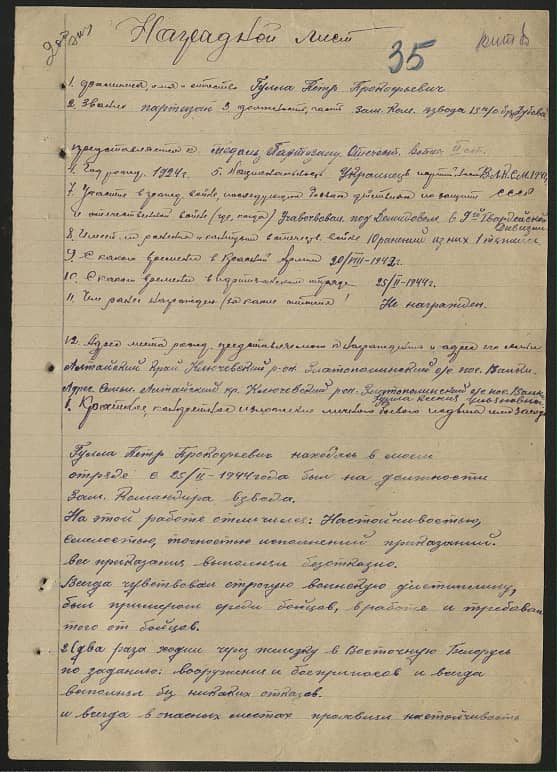 Наградной лист
35
1. фамилия, имя и отчество Гулла Пётр Прокофьевич
2. Звание партизан 3. должность, часть Зам. Ком. взвода
представляется к медаль Партизану Отечест. Войны II ст.
4. Год рожд. 1924 г. 5. Национальность Украинец В.Л.К.С.М.
7. Участие в гражд. войне, последующих боевых действиях по защите СССР
и отечественной войне (где, когда) Участвовал под Демидовом в Гвардейской
Дивизии
8. Имеет ли ранения и контузии в отечеств. войне 10 ранений из них 1 тяжелое
9. С какого времени в Красной армии 20/VIII-1942г.
10. С какого времени в партизанском отряде 25/II-1944г.
11. Чем ранее награжден (за какие отличия) Не награжден.
12. Адрес места рожд. представляемого к награждению и адрес его семьи
Алтайский Край Ключевский р-он. Златополинский с/с пос.
Адрес семьи. Алтайский кр. Ключевский рон. Златополинский с/с пос.
Гулла Ксения
1. Краткое, конкретное изложение личного боевого подвига или заслуг
Гулла Пётр Прокофьевич находясь в моем
отряде с 25/II-1944 года был на должности
Зам. Командира взвода.
На этой работе отличился: Настойчивостью,
смелостью, точностью исполнений приказаний.
все приказания выполнял безотказно.
Всегда чувствовал строгую воинскую дисциплину,
был примером среди бойцов, в работе и требовал
того от бойцов.
2 (два раза ходил через железку в Восточную Белорусь
по заданию: вооружения и боеприпасов и всегда
выполнял без никаких отказов.
и всегда в опасных местах проявлял настойчивость